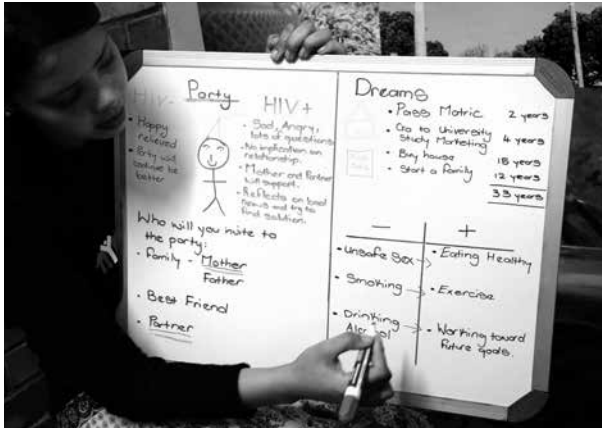 Party
HIV-
Happy
relieved
Party will
continue be
better
HIV+
Sad, Angry,
lots of questions
No implication on
relationship.
Mother and Partner
will support.
Reflects on bad
news and try to
find solution.
Who will you invite to
the party:
Family - Mother
Father
Best Friend
Partner
Dreams
Pass Matric 2 years
Go to University
Study Marketing 4 years
Buy house 15 years
Start a Family 12 years
33 years
- +
Unsafe Sex → Eating Healthy
Smoking → Exercise
Drinking → Working toward
Alcohol Future goals.